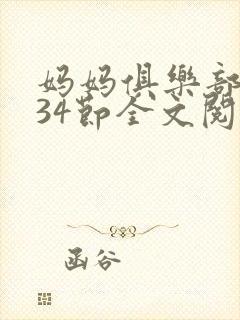 妈妈俱樂部
34節全文閱
函谷